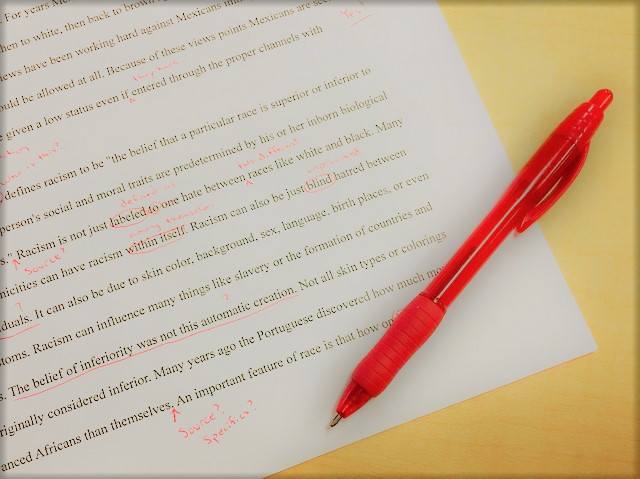 . For years Me
hen to white, then back to brown
iews have been working hard against Mexicans
Yes?
ould be allowed at all. Because of these views points Mexicans are see
they have
e given a low status even if entered through the proper channels with
defines racism to be "the belief that a particular race is superior or inferior to
person's social and moral traits are predetermined by his or her inborn biological
two different
unwarranted
s." Racism is not just labeled to one hate between races like white and black. Many
Source?
defined as
among themselves
nicities can have racism within itself. Racism can also be just blind hatred between
?
duals. It can also be due to skin color, background, sex, language, birth places, or even
?
stoms. Racism can influence many things like slavery or the formation of countries and
s. The belief of inferiority was not this automatic creation. Not all skin types or colorings
riginally considered inferior. Many years ago the Portuguese discovered how much mo
anced Africans than themselves. An important feature of race is that how
Source?
Specifics?